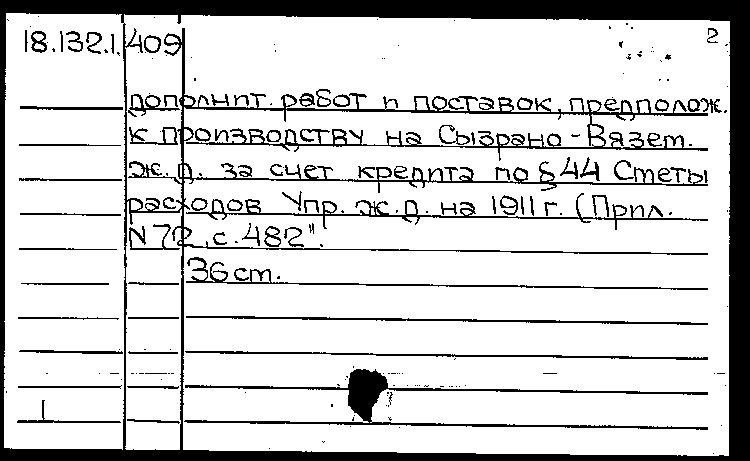 2
18.132.1. 409
дополнит. работ и поставок, предполож.
к производству на Сызрано-Вязем.
ж.д. за счет кредита по §44 Сметы
расходов Упр. ж.д. на 1911 г. (Прил.
N 72, с. 482".
36 ст.